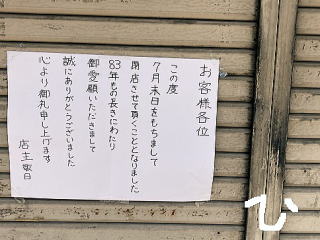 お客様各位
この度
7月末日をもちまして
閉店させて頂くこととなりました
83年もの長きにわたり
御愛顧いただきまして
誠にありがとうございました
心より御礼申し上げます
店主敬白
ひ